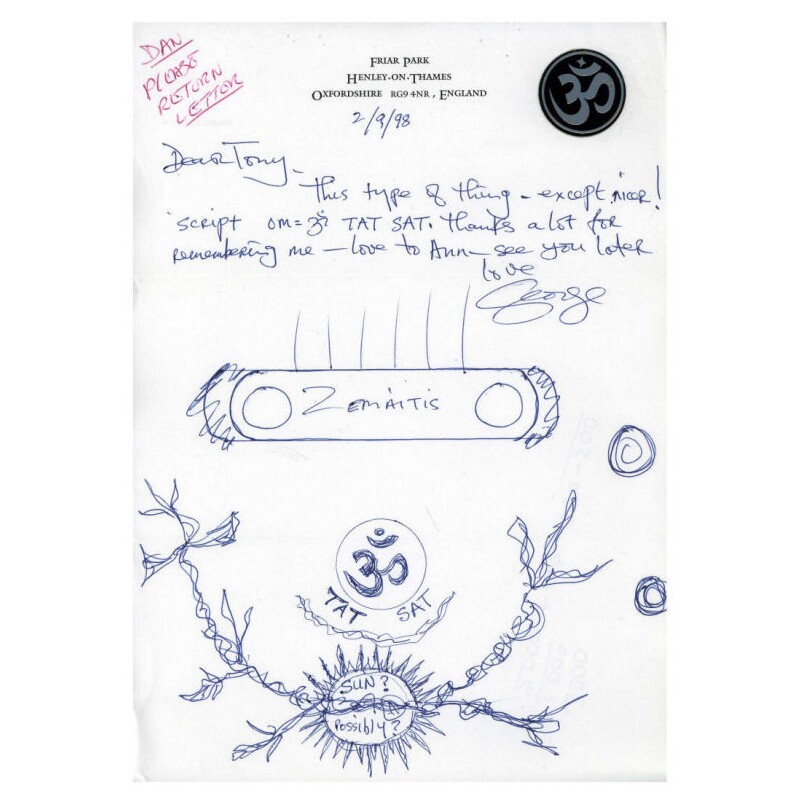 DAN
PLEASE
RETURN
LETTER
FRIAR PARK
HENLEY-ON-THAMES
OXFORDSHIRE RG9 4NR, ENGLAND
ॐ
2/9/98
Dear Tony –
This type of thing – except nicer!
script OM = ॐ TAT SAT. Thanks a lot for
remembering me – love to Ann – see you later
love
George
ZEMAITIS
ॐ
TAT SAT
SUN?
Possibly?